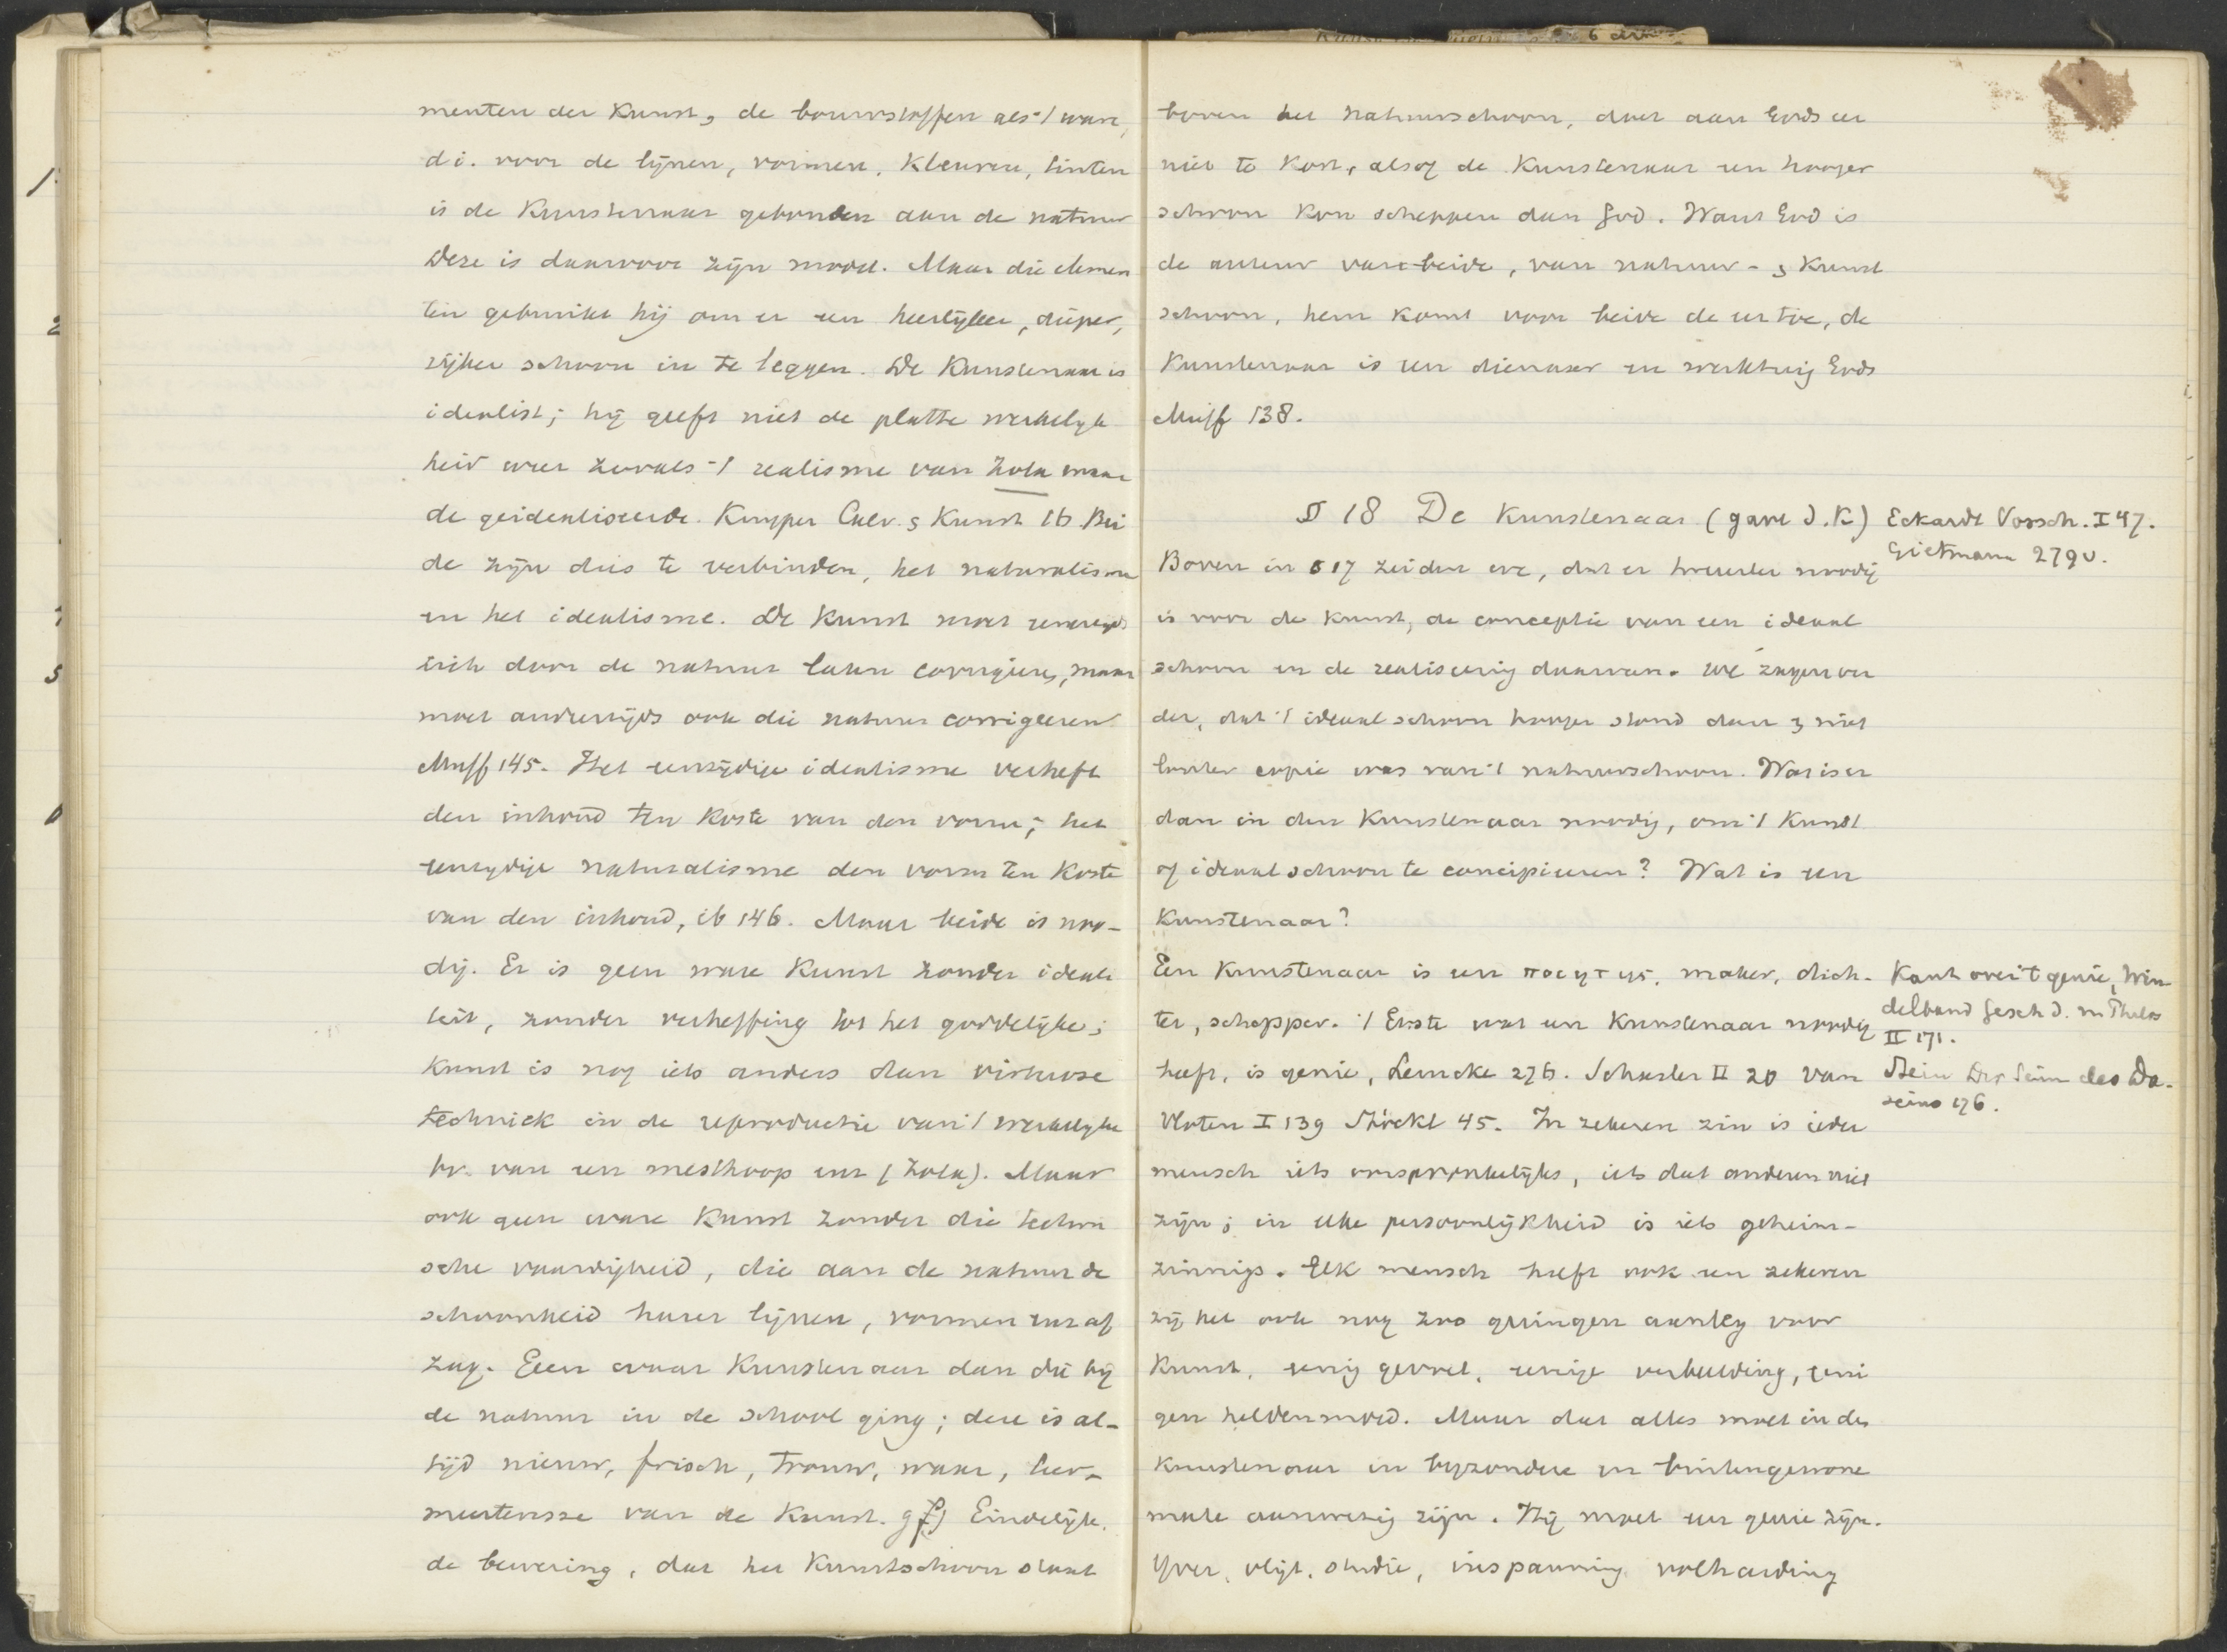 menten der Kunst, de bouwstoffen als 't ware,
d i. voor de lijnen, vormen, kleuren, tinten
is de Kunstenaar gebonden aan de natuur
Deze is daarvoor zijn model. Maar die elemen
ten gebruikt hij om er een heerlijker, dieper,
rijker schoon in te leggen. De Kunstenaar is
idealist; hij geeft niet de platte werkelijk
heid weer zooals 't realisme van Zola maar
de geidealiseerde. Kuyper Calv. & Kunst 16 Bei
de zijn dus te verbinden, het naturalisme
en het idealisme. De Kunst moet eenerzijds
zich door de natuur laten corrigeeren, maar
moet anderzijds ook die natuur corrigeeren
Muff 145. Het eenzijdige idealisme verheft
den inhoud ten koste van den vorm; het
eenzijdige naturalisme den vorm ten koste
van den inhoud, ib 146. Maar beide is noo-
dig. Er is geen ware Kunst zonder ideali
teit, zonder verheffing tot het goddelijke;
Kunst is nog iets anders dan virtuose
techniek in de reproductie van 't werkelijke
bv. van een mesthoop enz (Zola). Maar
ook geen ware Kunst zonder die techni
sche vaardigheid, die aan de natuur de
schoonheid harer lijnen, vormen enz af
zag. Geen waar Kunstenaar dan die bij
de natuur in de school ging; deze is al-
tijd nieuw, frisch, trouw, waar, leer-
meesteresse van de Kunst. Eindelijk
de bewering, dat het Kunstschoon staat
boven het natuurschoon, doet aan Gods eer
niet te kort, alsof de Kunstenaar een hooger
schoon kon scheppen dan God. Want God is
de auteur van beide, van natuur- & Kunst
schoon, hem komt voor beide de eer toe, de
Kunstenaar is een dienaar en werktuig Gods
Muff 138.
§ 18 De Kunstenaar (gave d. K) Eckardt Vorsch. I 47.
Gietmann 279v.
Boven in § 17 zeiden we, dat er tweeerlei noodig
is voor de Kunst, de conceptie van een ideaal
schoon en de realiseering daarvan. We zagen ver
der, dat 't ideaalschoon hooger stond dan & niet
louter copie was van 't natuurschoon. Wat is er
dan in den Kunstenaar noodig, om 't Kunst
of ideaalschoon te concipieeren? Wat is een
Kunstenaar?
Een Kunstenaar is een ποιητης, maker, dich-
ter, schepper. 't Eerste wat een Kunstenaar noodig
heeft, is genie, Lemcke 276. Schasler II 20 van
Vloten I 139 Stöckl 45. In zekeren zin is ieder
mensch iets oorspronkelijks, iets dat anderen niet
zijn; in elke persoonlijkheid is iets geheim-
zinnigs. Elk mensch heeft ook een zekeren
zij het ook nog zoo geringen aanleg voor
Kunst, eenig gevoel, eenige verbeelding, eeni
gen heldenmoed. Maar dat alles moet in den
Kunstenaar in bijzondere en buitengewone
mate aanwezig zijn. Hij moet een genie zijn.
Yver, vlijt, studie, inspanning volharding
Kant over 't genie, Win
delband Gesch d. n Philos
II 171.
Stein Der Sinn des Da-
seins 176.